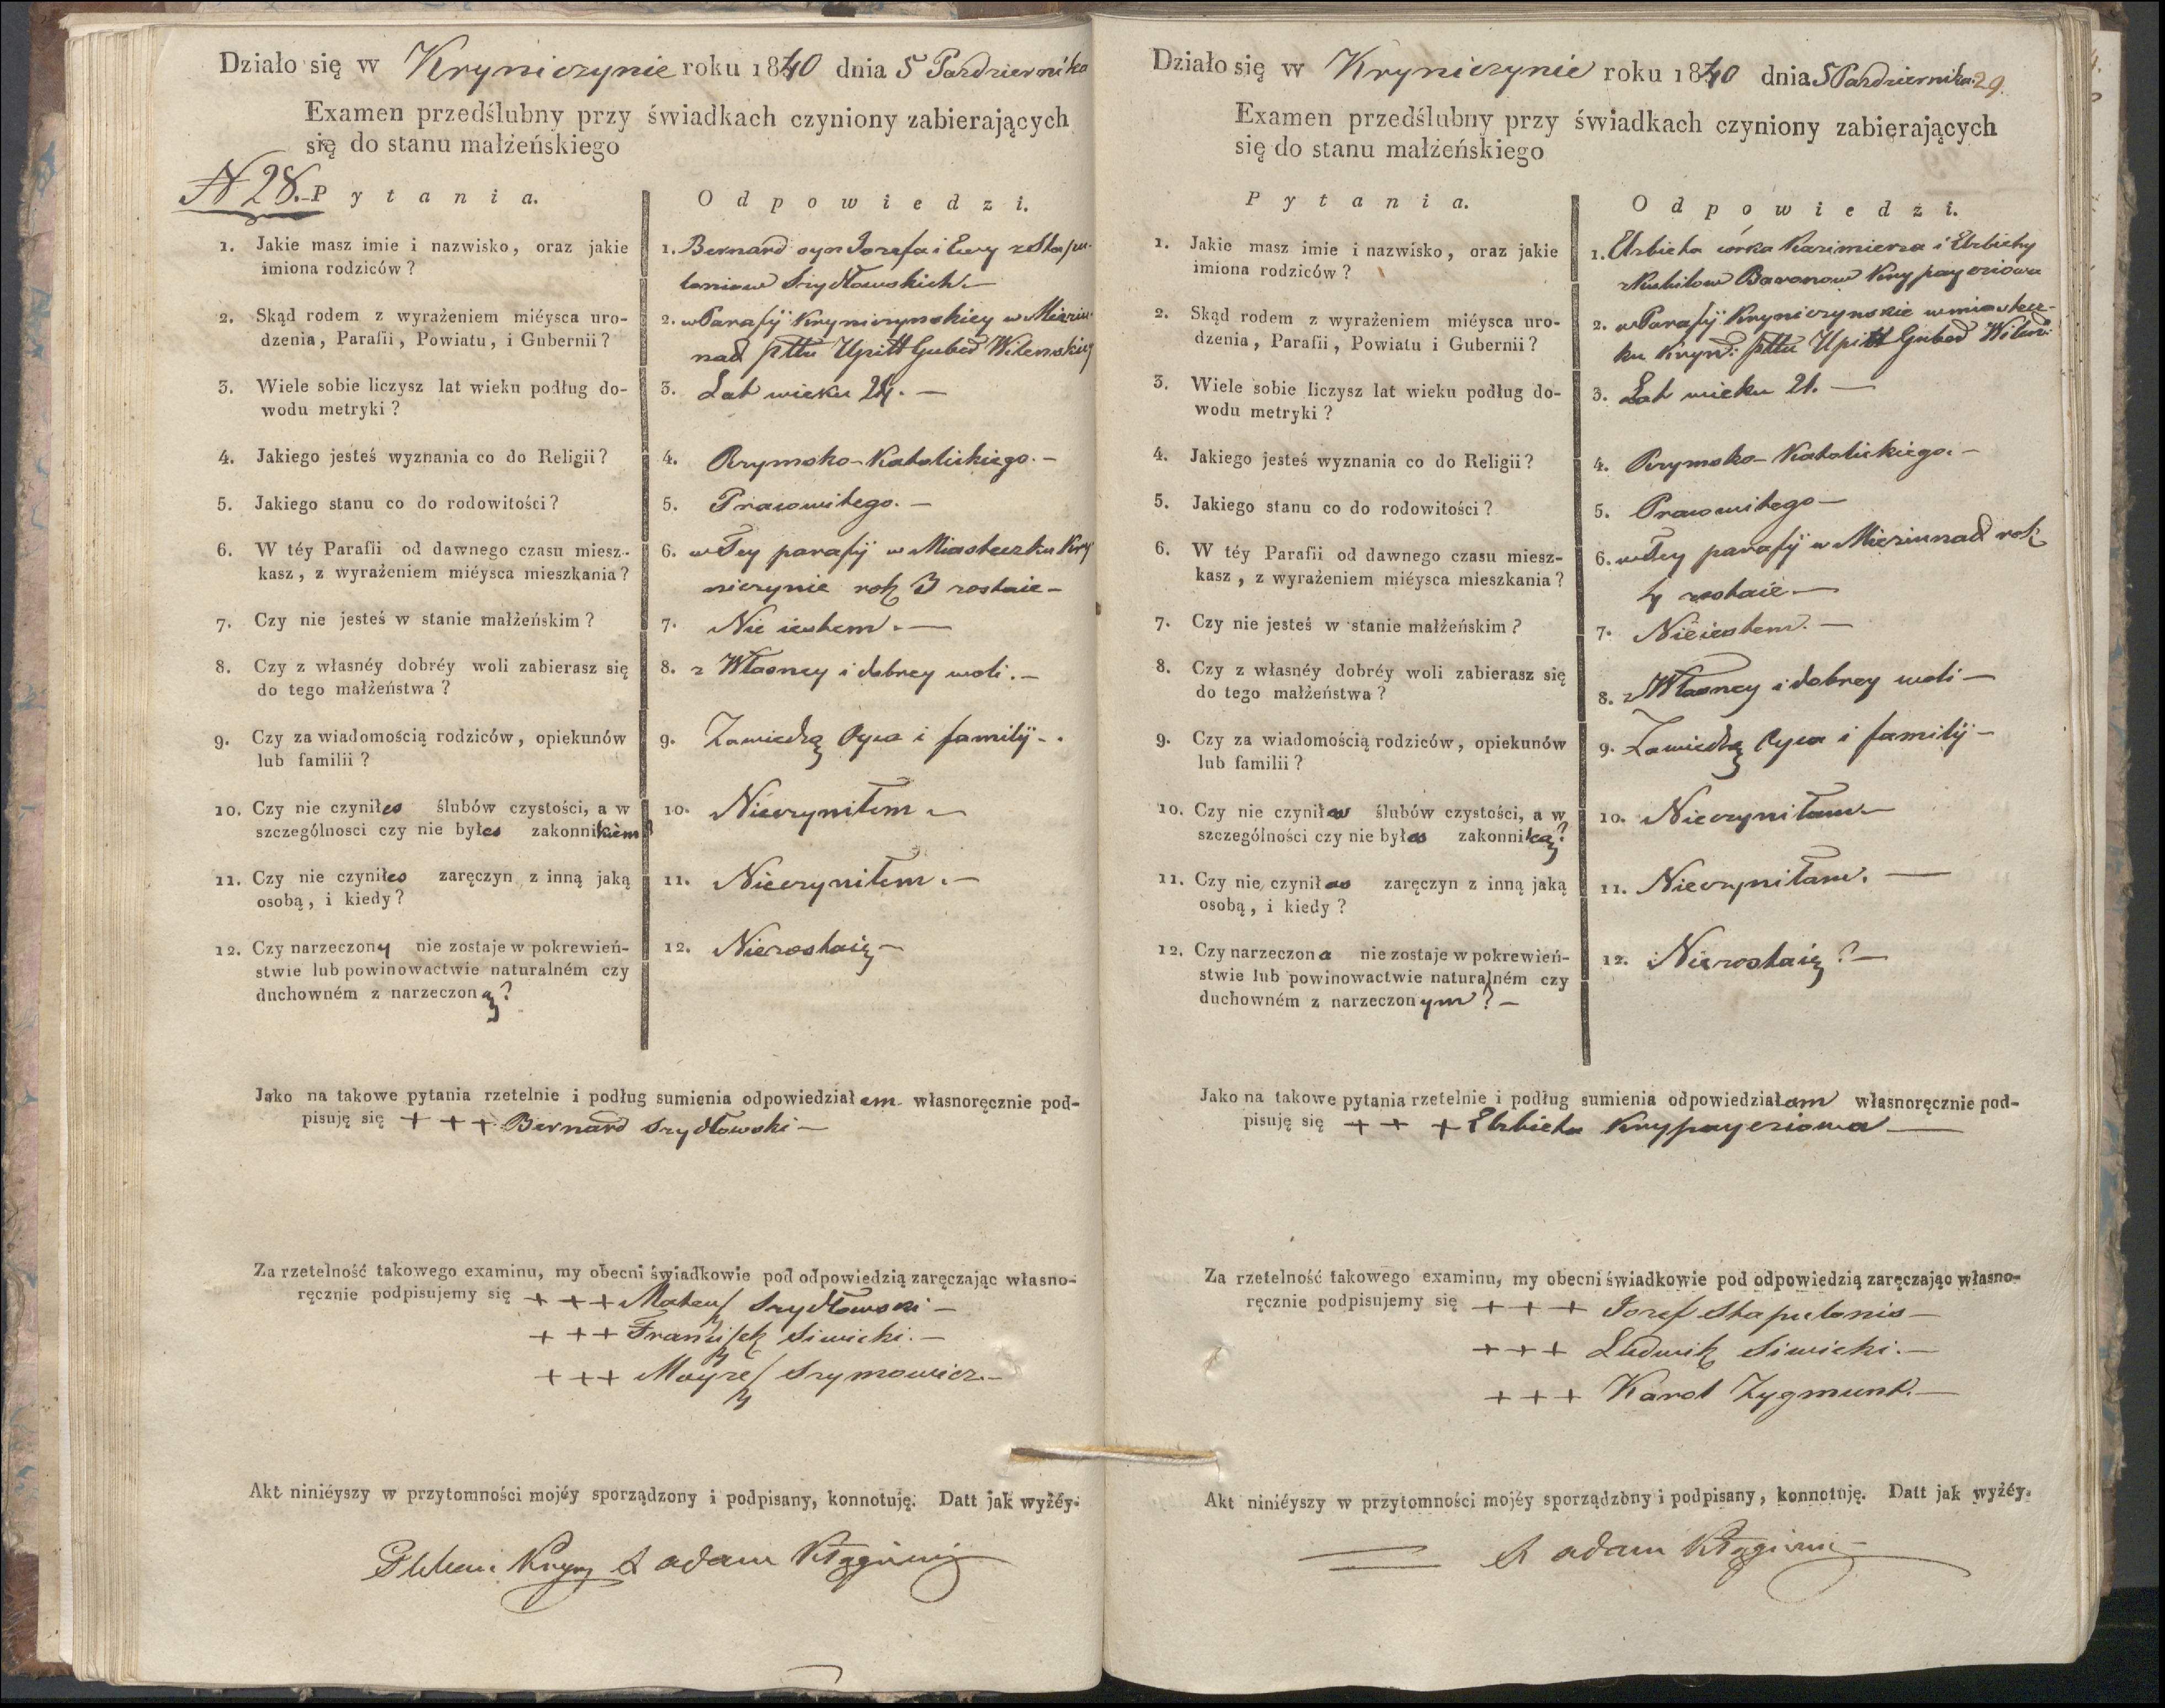 Działo się w Kryniczynie roku 1840 dnia 5 Pazdziernika
Examen przedślubny przy świadkach czyniony zabierających
się do stanu małżeńskiego
N 28. Pytania.
Odpowiedzi.
1. Jakie masz imie i nazwisko, oraz jakie
imiona rodziców?
1. Bernard syn Jozefa i Ewy z Stapu-
laniow Szydłowskich.—
2. Skąd rodem z wyrażeniem miéysca uro-
dzenia, Parafii, Powiatu, i Gubernii?
2. w Parafij Kryniczynskiey w Mieziu-
nad pttu Upitt Guber Wilenskiey
3. Wiele sobie liczysz lat wieku podług do-
wodu metryki?
3. Lat wieku 24.—
4. Jakiego jesteś wyznania co do Religii?
4. Rzymsko-Katolickiego.—
5. Jakiego stanu co do rodowitości?
5. Pracowitego.—
6. W téy Parafii od dawnego czasu miesz-
kasz, z wyrażeniem miéysca mieszkania?
6. w Tey parafij w Miasteczku Kry
niczynie rok 3 zostaie—
7. Czy nie jesteś w stanie małżeńskim?
7. Nie iestem.—
8. Czy z własnéy dobréy woli zabierasz się
do tego małżeństwa?
8. z Własney i dobrey woli.—
9. Czy za wiadomością rodziców, opiekunów
lub familii?
9. Zawiedzą Oyca i familij-.
10. Czy nie czyniłes ślubów czystości, a w
szczególnosci czy nie byłes zakonnikiem?
10. Nieczyniłem—
11. Czy nie czyniłes zaręczyn z inną jaką
osobą, i kiedy?
11. Nieczyniłem.—
12. Czy narzeczony nie zostaje w pokrewień-
stwie lub powinowactwie naturalném czy
duchowném z narzeczoną?
12. Niezostaię—
Jako na takowe pytania rzetelnie i podług sumienia odpowiedziałem własnoręcznie pod-
pisuję się + + + Bernard Szydłowski—
Za rzetelność takowego examinu, my obecni świadkowie pod odpowiedzią zaręczając własno-
ręcznie podpisujemy się + + + Mateusz Szydłowski—
+ + + Franciszek Siwicki.—
+ + + Moyzesz Szymowicz.—
Akt niniéyszy w przytomności mojéy sporządzony i podpisany, konnotuję. Datt jak wyżéy.
Adam
Działo się w Kryniczynie roku 1840 dnia 5 Pazdziernika 29.
Examen przedślubny przy świadkach czyniony zabierających
się do stanu małżeńskiego
Pytania.
Odpowiedzi.
1. Jakie masz imie i nazwisko, oraz jakie
imiona rodziców?
1. Elzbieta córka Kazimierza i Elzbiety
z Kubilow Baronow Krypayciowa
2. Skąd rodem z wyrażeniem miéysca uro-
dzenia, Parafii, Powiatu i Gubernii?
2. w Parafij Kryniczynskie w miastecz-
ku Kryn: pttu Upitt Guber Wilen:
3. Wiele sobie liczysz lat wieku podług do-
wodu metryki?
3. Lat wieku 21.—
4. Jakiego jesteś wyznania co do Religii?
4. Rzymsko-Katolickiego.—
5. Jakiego stanu co do rodowitości?
5. Pracowitego—
6. W téy Parafii od dawnego czasu miesz-
kasz, z wyrażeniem miéysca mieszkania?
6. w Tey parafij w Mieziunad rok
4 zostaie—
7. Czy nie jesteś w stanie małżeńskim?
7. Nieiestem.—
8. Czy z własnéy dobréy woli zabierasz się
do tego małżeństwa?
8. z Własney i dobrey woli—
9. Czy za wiadomością rodziców, opiekunów
lub familii?
9. Zawiedzą Oyca i familij—
10. Czy nie czyniłas ślubów czystości, a w
szczególności czy nie byłas zakonniką?
10. Nieczyniłam—
11. Czy nie czyniłas zaręczyn z inną jaką
osobą, i kiedy?
11. Nieczyniłam.—
12. Czy narzeczona nie zostaje w pokrewień-
stwie lub powinowactwie naturalném czy
duchowném z narzeczonym?—
12. Niezostaię?—
Jako na takowe pytania rzetelnie i podług sumienia odpowiedziałam własnoręcznie pod-
pisuję się + + + Elzbieta Krypayciowa—
Za rzetelność takowego examinu, my obecni świadkowie pod odpowiedzią zaręczając własno-
ręcznie podpisujemy się + + + Jozef Stapulonis—
+ + + Ludwik Siwicki.—
+ + + Karol Zygmunt.—
Akt niniéyszy w przytomności mojéy sporządzony i podpisany, konnotuję. Datt jak wyżéy.
Adam